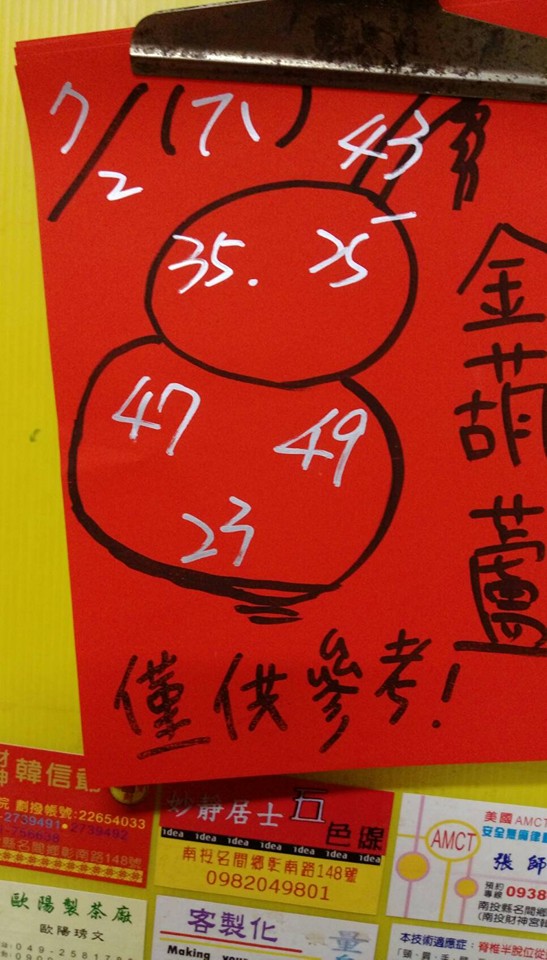 7/2 (六)
43
35. 25
47 49
23
金葫蘆
僅供參考!
韓信爺
劃撥帳號:22654033
2739491•2739492
名間鄉彰南路148號
妙静居士五色線
idea idea idea idea idea idea idea
南投名間鄉彰南路148號
0982049801
美國AMCT
AMCT
張
預約專線 0938
南投縣名間鄉
(南投財神宮
歐陽製茶廠
歐陽琇文
049-2581
客製化
Making your
本技術適應症:脊椎半脫位